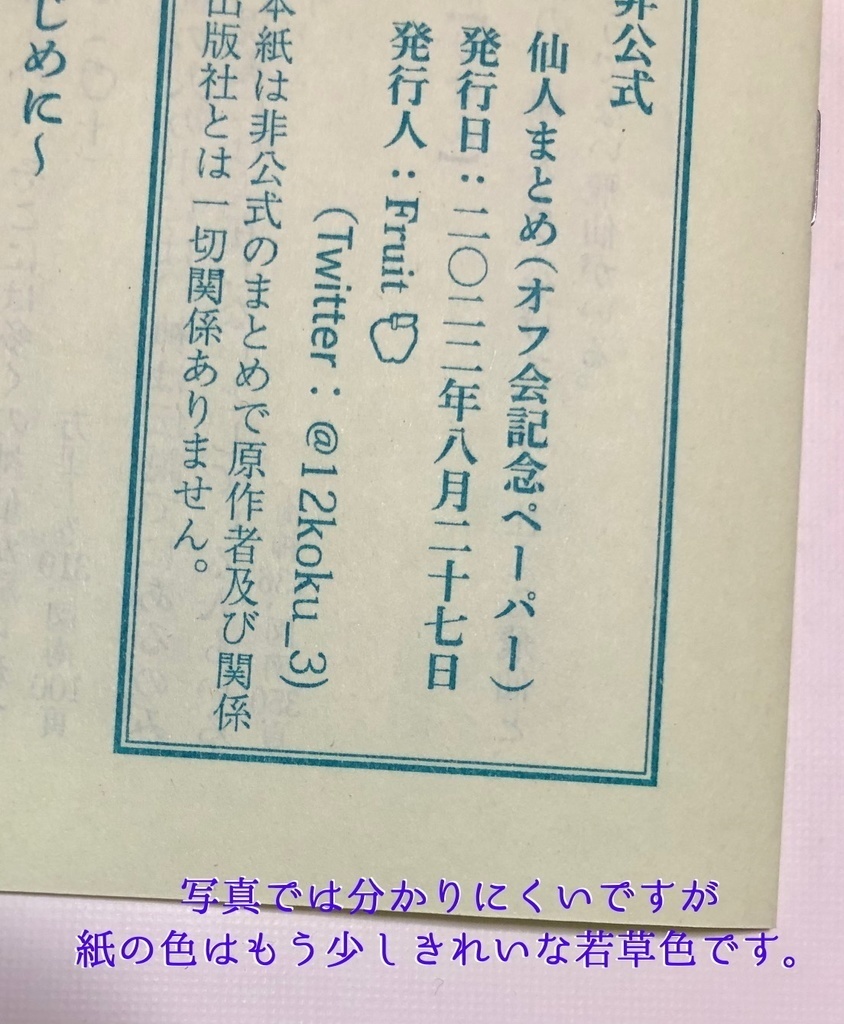 非公式
仙人まとめ（オフ会記念ペーパー）
発行日：二〇二二年八月二十七日
発行人：Fruit
（Twitter：@12koku_3）
本紙は非公式のまとめで原作者及び関係
出版社とは一切関係ありません。
じめに〜
写真では分かりにくいですが
紙の色はもう少しきれいな若草色です。